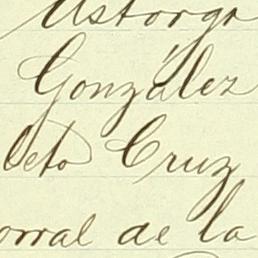 Astorga
González
leto Cruz
orral de la